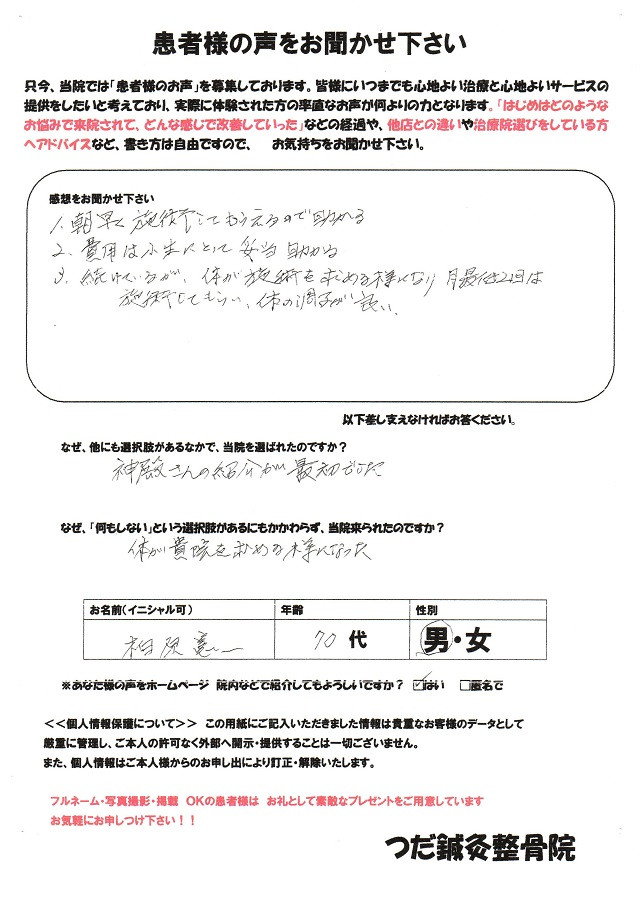 患者様の声をお聞かせ下さい
只今、当院では「患者様のお声」を募集しております。皆様にいつまでも心地よい治療と心地よいサービスの
提供をしたいと考えており、実際に体験された方の率直なお声が何よりの力となります。「はじめはどのような
お悩みで来院されて、どんな感じで改善していった」などの経過や、他店との違いや治療院選びをしている方
へアドバイスなど、書き方は自由ですので、 お気持ちをお聞かせ下さい。
感想をお聞かせ下さい
1. 朝早く施術してもらえるので助かる
2. 費用は小生にとって妥当 助かる
3. 続けているが、体が施術を求める様になり 月最低2回は
施術してもらい、体の調子が良い、
以下差し支えなければお答ください。
なぜ、他にも選択肢があるなかで、当院を選ばれたのですか？
さんの紹介が最初でした
なぜ、「何もしない」という選択肢があるにもかかわらず、当院来られたのですか？
体が貴院を求める様になった
お名前(イニシャル可) 年齢 性別
70 代 男・女
※あなた様の声をホームページ 院内などで紹介してもよろしいですか？ ☑はい □匿名で
＜＜個人情報保護について＞＞ この用紙にご記入いただきました情報は貴重なお客様のデータとして
厳重に管理し、ご本人の許可なく外部へ開示・提供することは一切ございません。
また、個人情報はご本人様からのお申し出により訂正・解除いたします。
フルネーム・写真撮影・掲載 OKの患者様は お礼として素敵なプレゼントをご用意しています
お気軽にお申しつけ下さい！！
つだ鍼灸整骨院